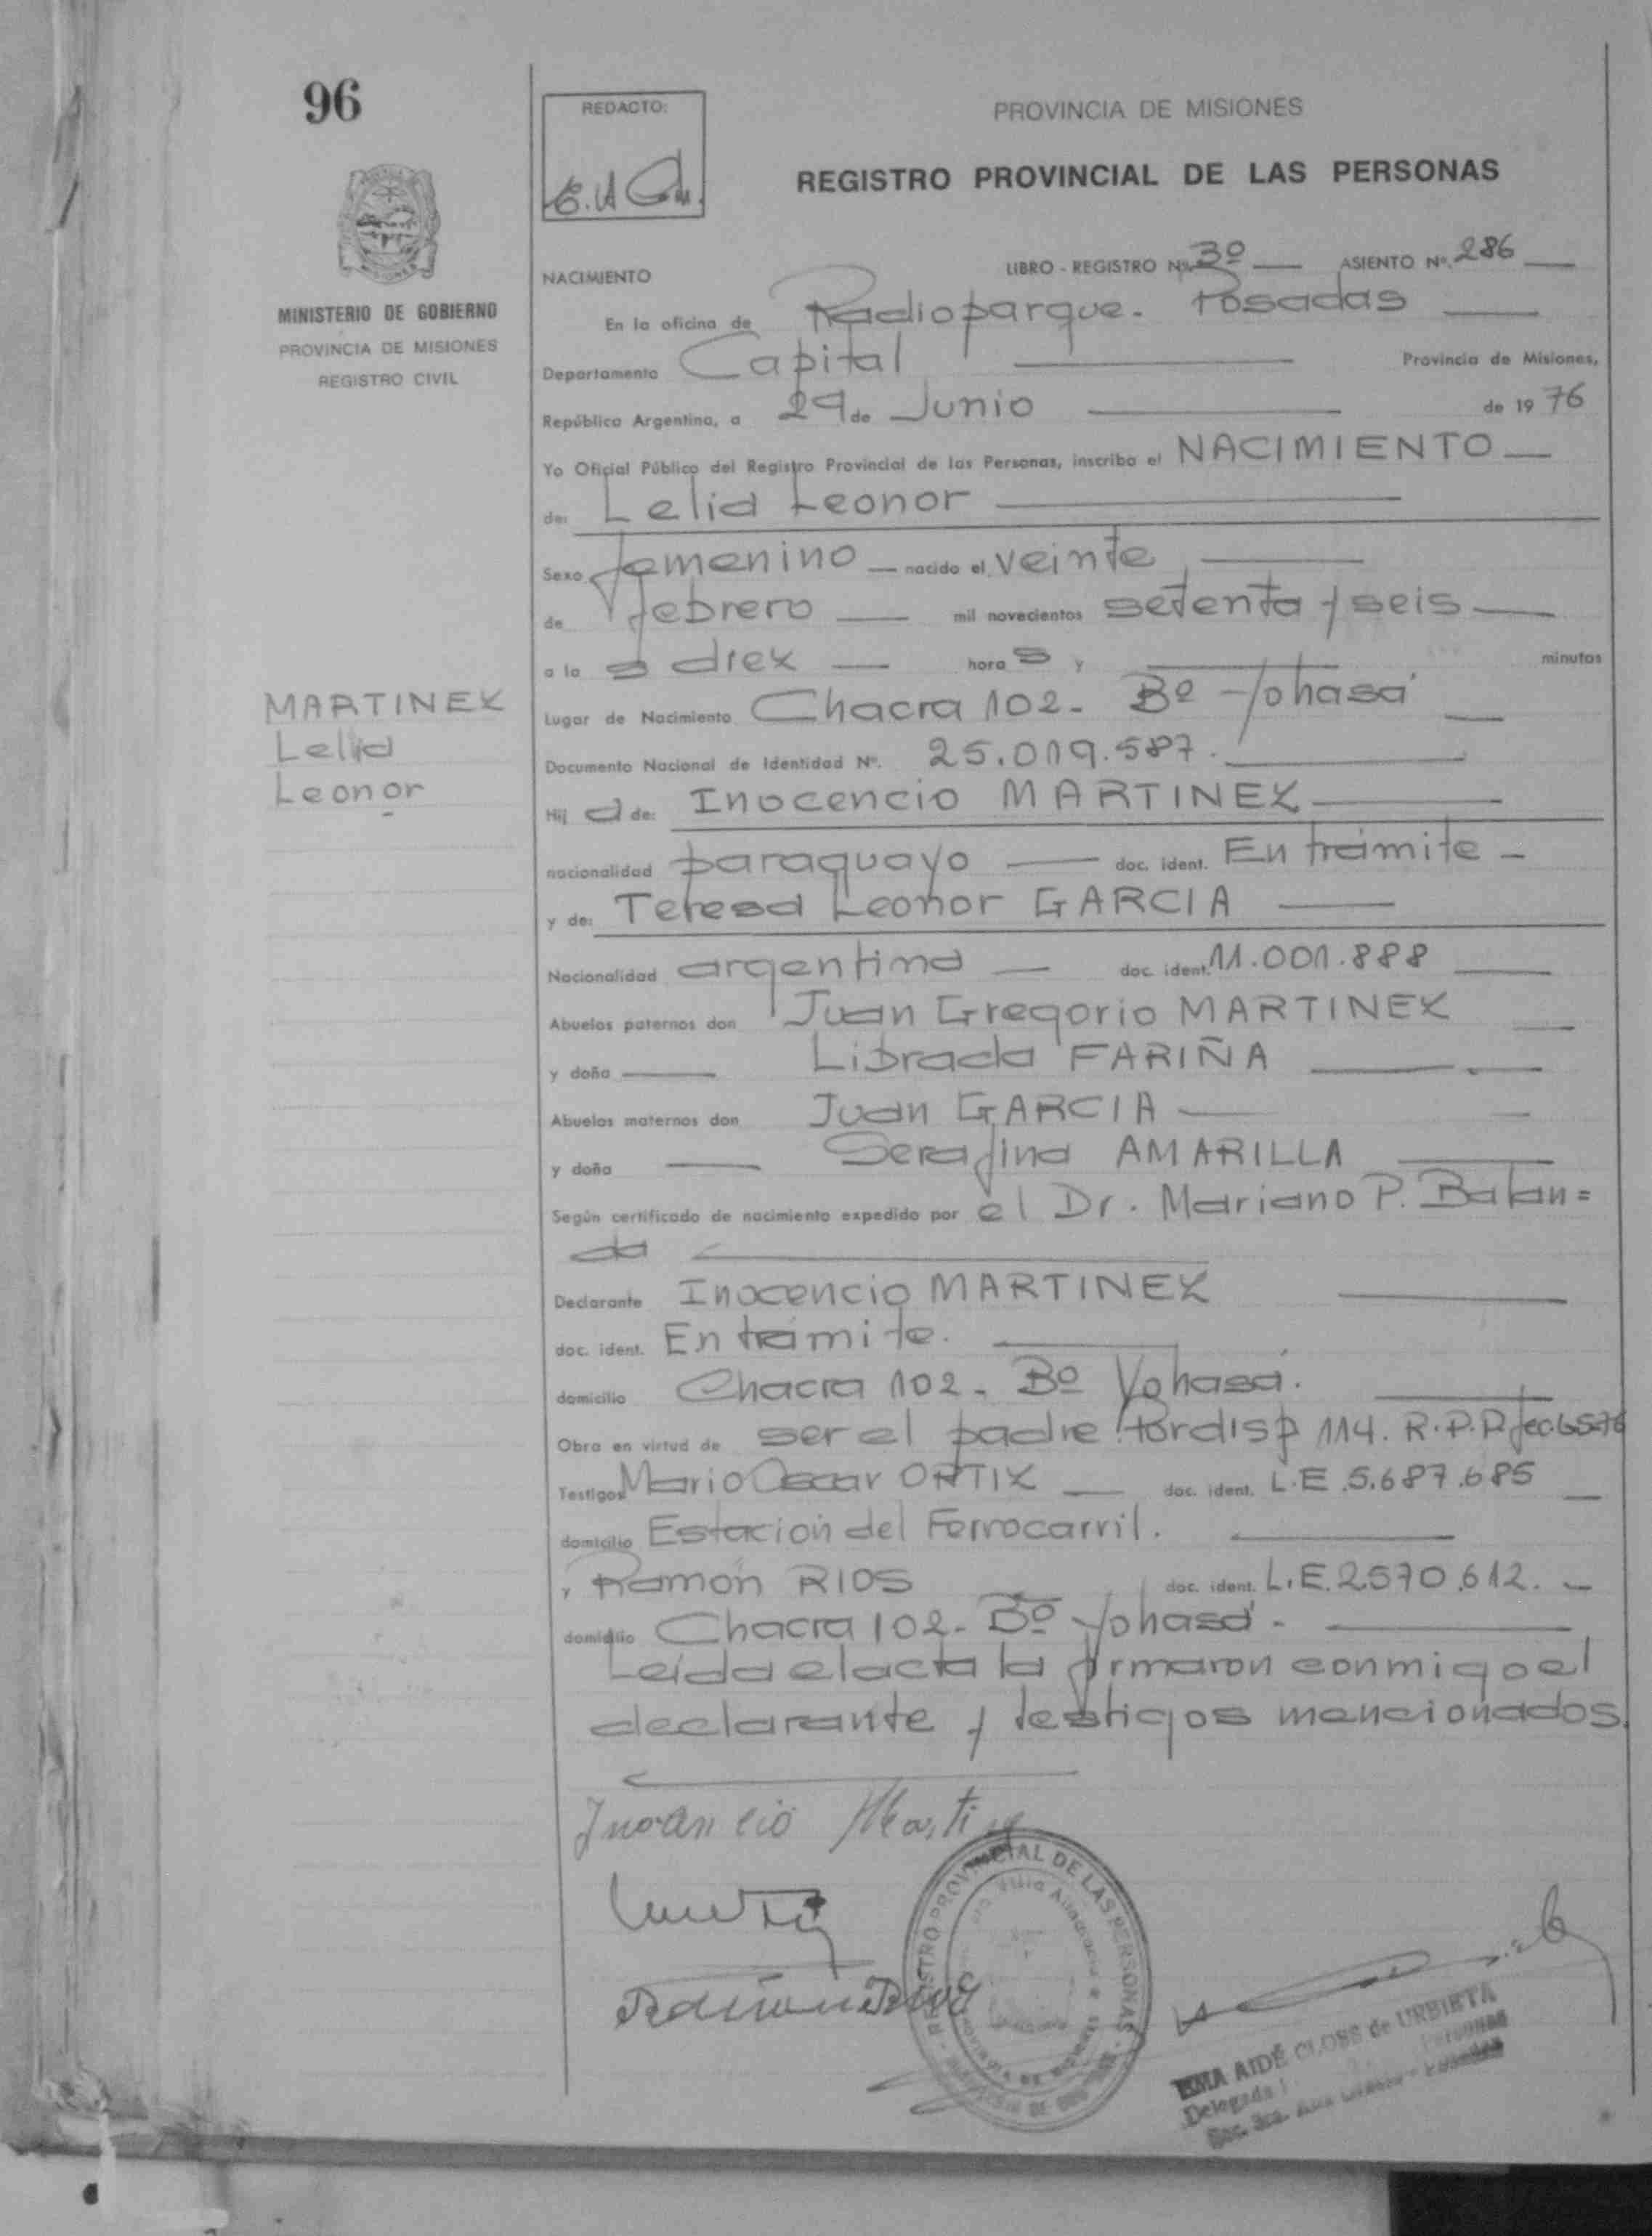 96
REDACTO:
PROVINCIA DE MISIONES
REGISTRO PROVINCIAL DE LAS PERSONAS
NACIMIENTO
LIBRO - REGISTRO Nº 3º ASIENTO Nº. 286
MINISTERIO DE GOBIERNO
PROVINCIA DE MISIONES
REGISTRO CIVIL
En la oficina de Radioparque - Posadas
Departamento Capital Provincia de Misiones,
República Argentina, a 29 de Junio de 1976
Yo Oficial Público del Registro Provincial de las Personas, inscribo el NACIMIENTO
de: Lelia Leonor
Sexo femenino nacido el veinte
de febrero mil novecientos setenta y seis
a las diez horas y minutos
MARTINEZ
Lelia
Leonor
Lugar de Nacimiento Chacra 102 - Bº Yohasá
Documento Nacional de Identidad Nº. 25.019.587.
Hija de: Inocencio MARTINEZ
nacionalidad paraguayo doc. ident. En trámite
y de: Teresa Leonor GARCIA
Nacionalidad argentina doc. ident. 11.001.888
Abuelos paternos don Juan Gregorio MARTINEZ
y doña Librada FARIÑA
Abuelos maternos don Juan GARCIA
y doña Serafina AMARILLA
Según certificado de nacimiento expedido por el Dr. Mariano P. Balan=
da
Declarante Inocencio MARTINEZ
doc. ident. En trámite.
domicilio Chacra 102 - Bº Yohasá.
Obra en virtud de ser el padre. Por disp 114. R.P.P. fec.6-5-76
Testigos Mario Oscar ORTIZ doc. ident. L.E. 5.687.685
domicilio Estación del Ferrocarril.
y Ramón RIOS doc. ident. L.E. 2.570.612.
domicilio Chacra 102 - Bº Yohasá.
Leída el acta la firmaron conmigo el
declarante y testigos mencionados.
Inocencio Martinez
Ramon Rios
REGISTRO PROVINCIAL DE LAS PERSONAS
AIDÉ CLOSS de URBIETA
Delegada